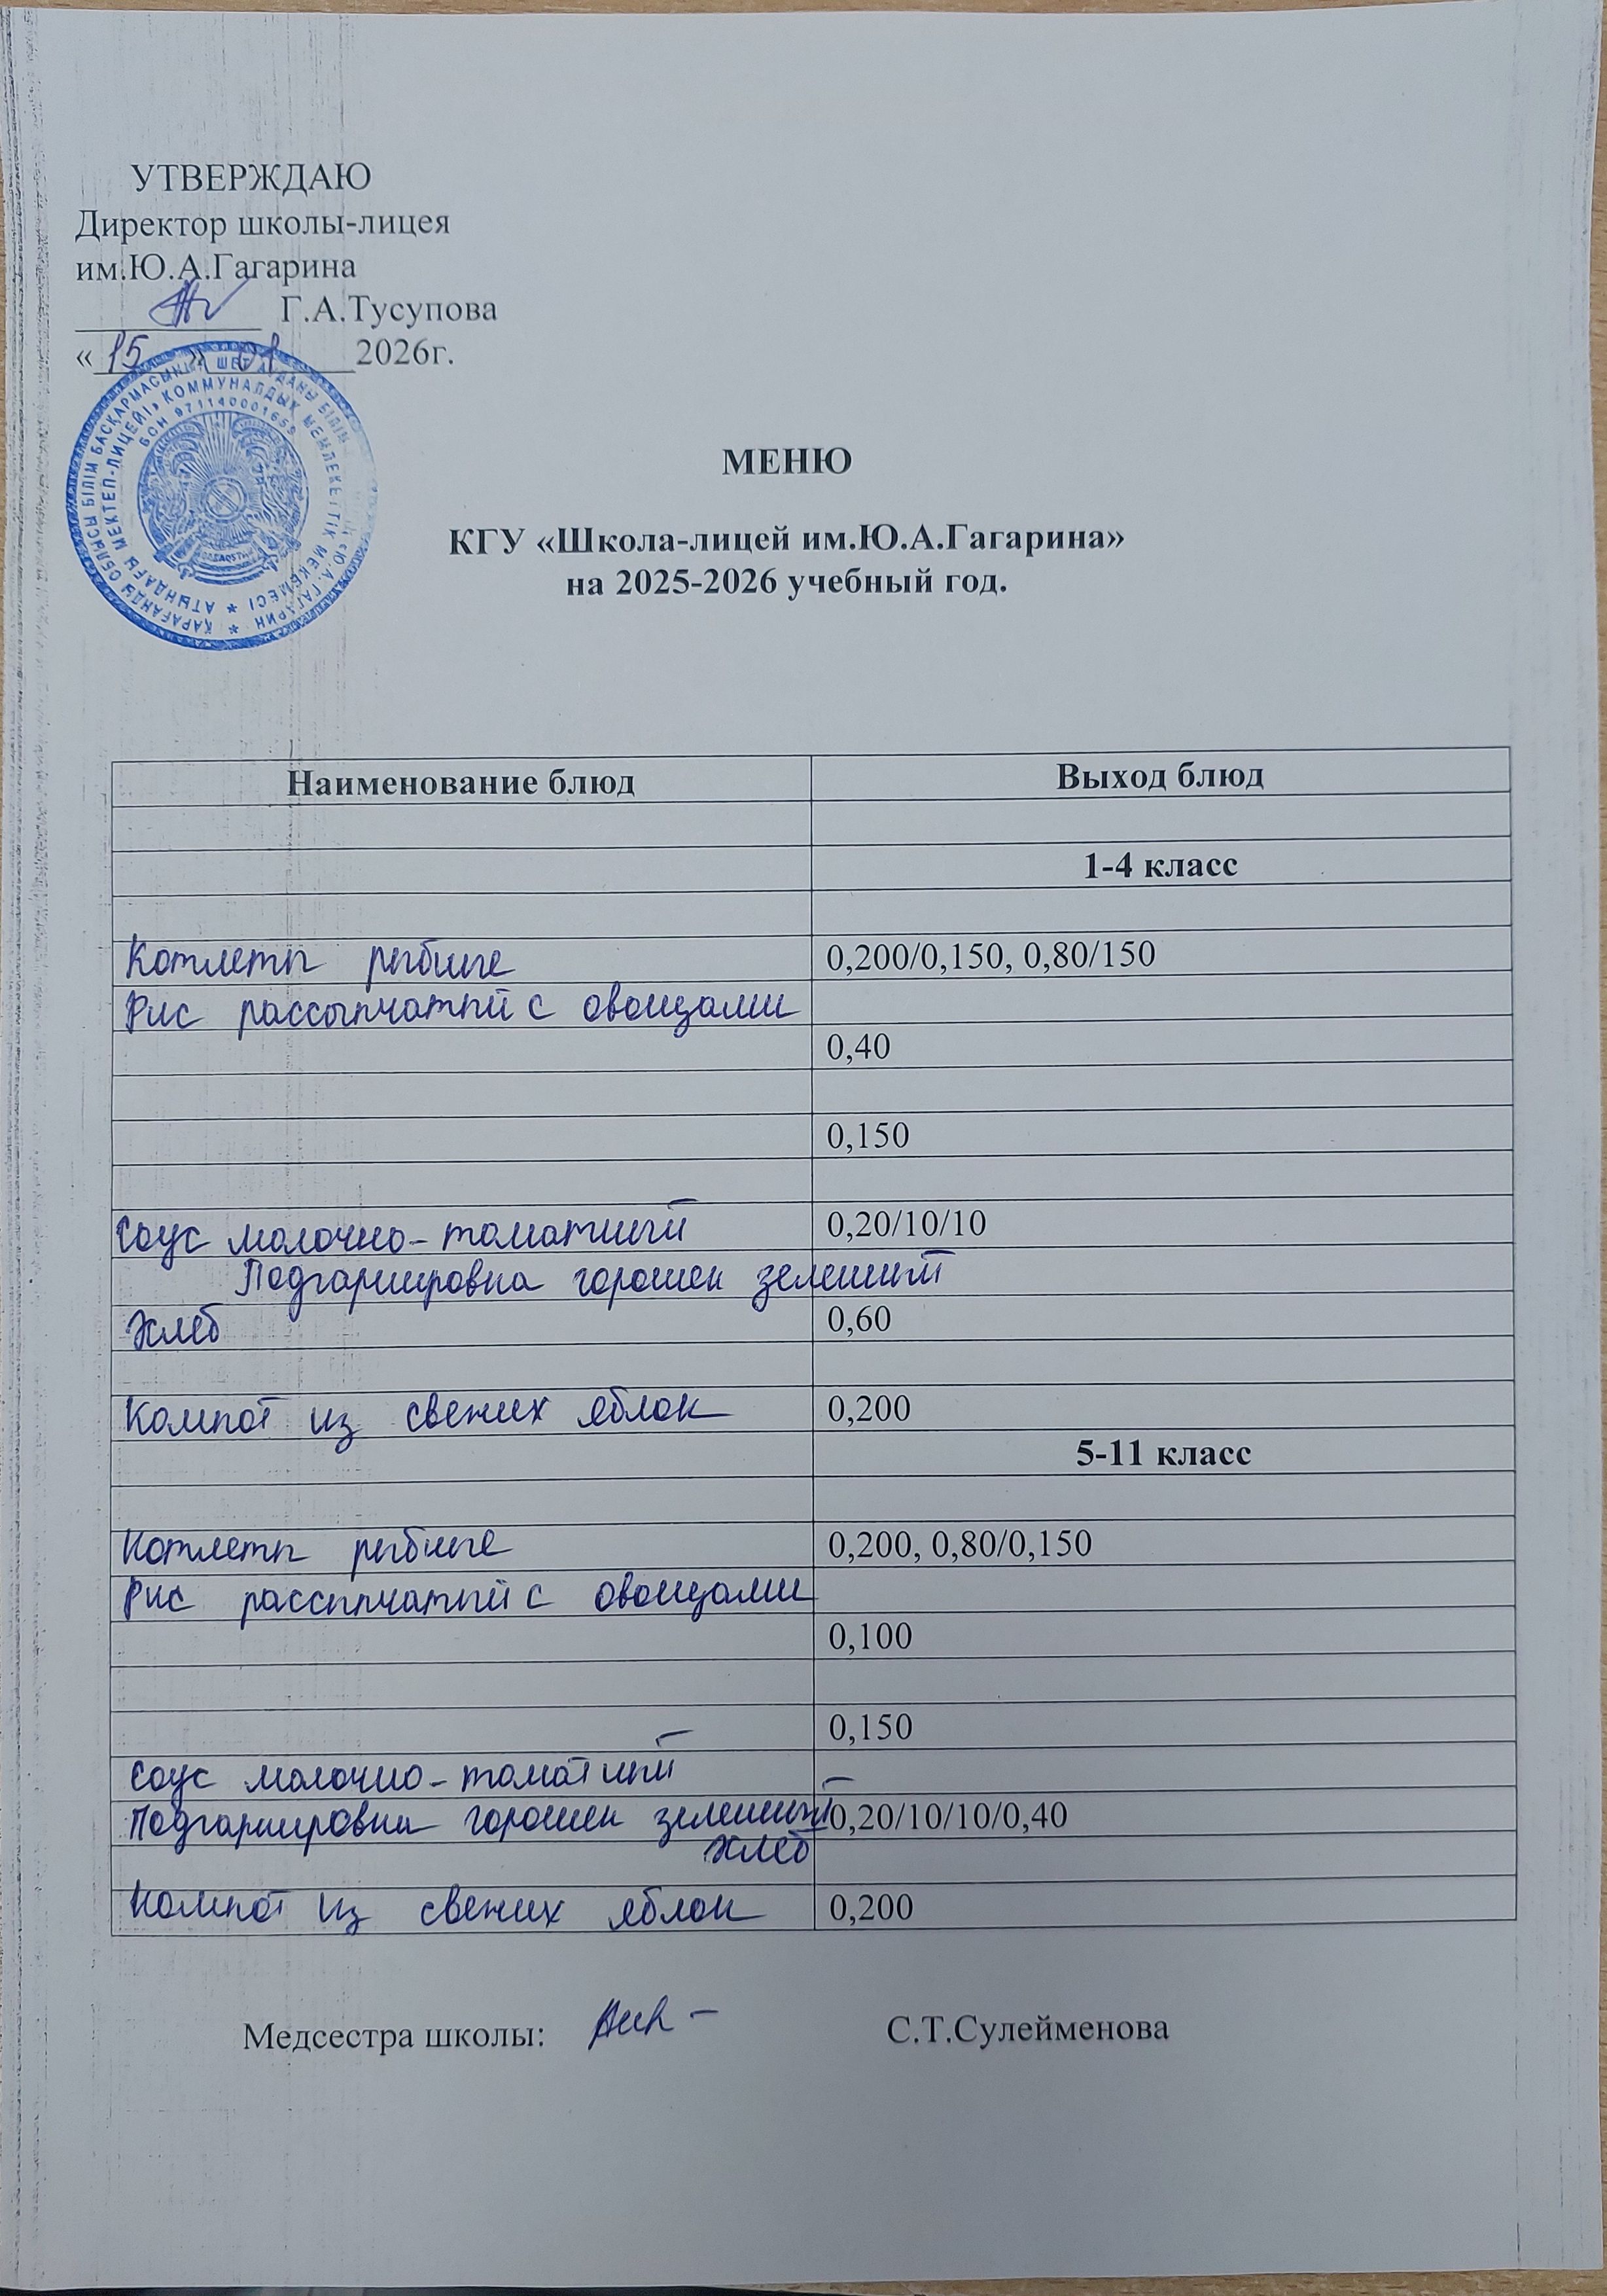 УТВЕРЖДАЮ
Директор школы-лицея
им.Ю.А.Гагарина
Г.А.Тусупова
«15» 01 2026г.
БСН 971140001659
МЕНЮ
КГУ «Школа-лицей им.Ю.А.Гагарина»
на 2025-2026 учебный год.
Наименование блюд Выход блюд
1-4 класс
Котлеты рыбные 0,200/0,150, 0,80/150
Рис рассыпчатый с овощами
0,40
0,150
Соус молочно-томатный 0,20/10/10
Подгарнировка горошек зеленый
Хлеб 0,60
Компот из свежих яблок 0,200
5-11 класс
Котлеты рыбные 0,200, 0,80/0,150
Рис рассыпчатый с овощами
0,100
0,150
Соус молочно-томатный
Подгарнировка горошек зеленый 0,20/10/10/0,40
Хлеб
Компот из свежих яблок 0,200
Медсестра школы: С.Т.Сулейменова